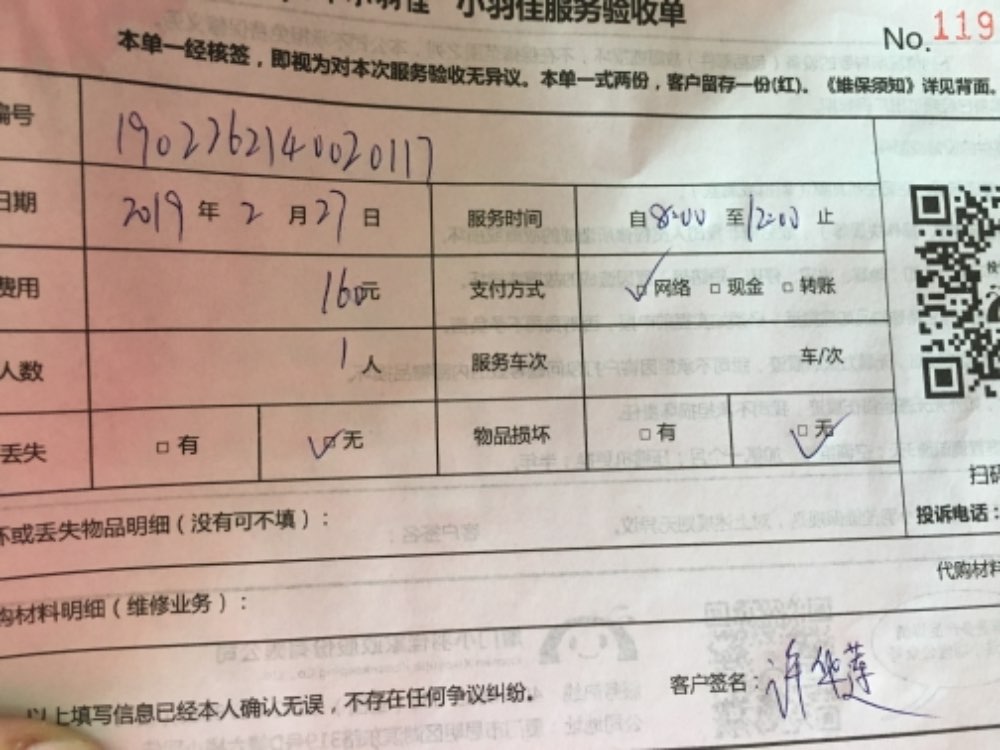 小羽佳服务验收单
No. 119
本单一经核签，即视为对本次服务验收无异议。本单一式两份，客户留存一份(红)。《维保须知》详见背面。
编号 1902262140020117
日期 2019 年 2 月 27 日 服务时间 自 8:00 至 12:00 止
费用 160元 支付方式 ✓网络 □ 现金 □ 转账
人数 1 人 服务车次 车/次
丢失 □ 有 ✓□ 无 物品损坏 □ 有 ✓□ 无
扫码
坏或丢失物品明细（没有可不填）：
投诉电话：
代购材料
购材料明细（维修业务）：
以上填写信息已经本人确认无误，不存在任何争议纠纷。
客户签名：许华莲